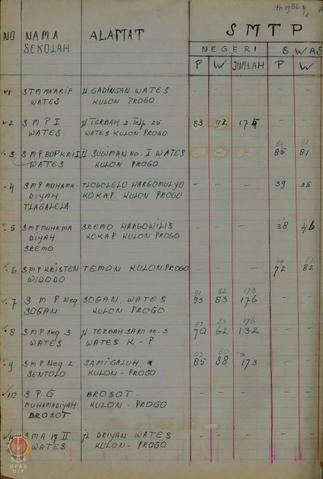 th 1986
S M T P
NO NAMA SEKOLAH ALAMAT NEGERI SWAS
P W JUMLAH P W
1 STM MA'ARIF WATES Jl. GADINGAN WATES KULON PROGO - - - - -
2 S M P I WATES Jl TERBAH 2 Telp. 25 WATES KULON PROGO 83 92 175 - -
3 SMP BOPKRI II WATES Jl SUGIMAN No. I WATES KULON PROGO - - - 85 81
4 SMP MUHAMADIYAH TLOGOLELO HARGOMULYO KOKAP KULON PROGO - - - 39 25
5 SMP MUHAMADIYAH SREMO SREMO HARGOWILIS KOKAP KULON PROGO - - - 38 46
6 SMP KRISTEN WIDODO TEMON KULON PROGO - - - 72 82
7 S M P Neg SOGAN SOGAN, WATES KULON PROGO 93 83 176 - -
8 SMP neg 3 WATES Jl. TERBAH SARI no. 3 WATES K - P 70 62 132 - -
9 SMP Neg 2 SENTOLO SAMIGALUH KULON - PROGO 85 88 173 - -
10 S P G MUHAMADIYAH BROSOT BROSOT KULON - PROGO - - - - -
SMA 17 II WATES Jl DRIYAN WATES KULON - PROGO - - - - -